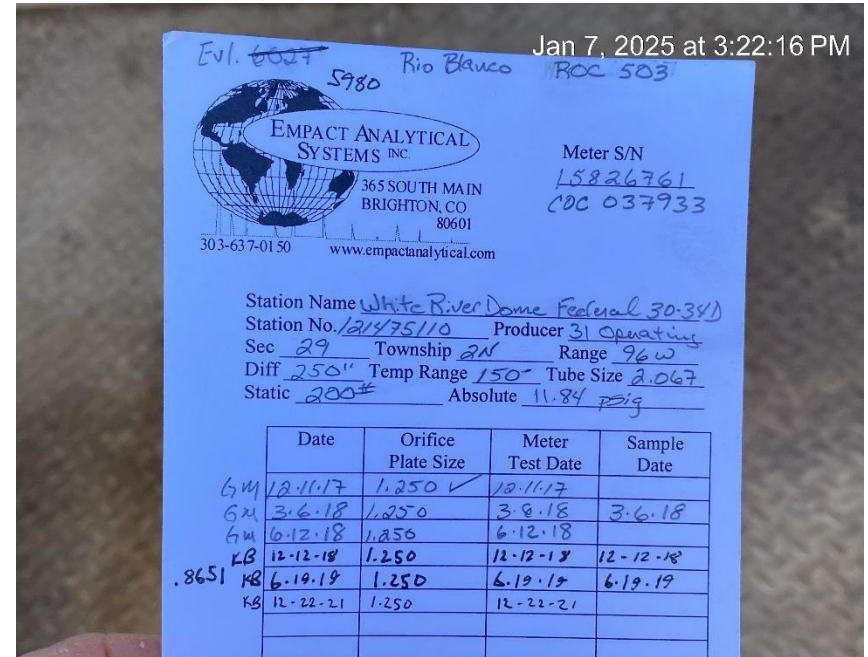 Jan 7, 2025 at 3:22:16 PM
Evl. 6027 Rio Blanco ROC 503
5980
EMPACT ANALYTICAL
SYSTEMS INC.
365 SOUTH MAIN
BRIGHTON, CO
80601
303-637-0150 www.empactanalytical.com
Meter S/N
15826761
CDC 037933
Station Name White River Dome Federal 30-34D
Station No. 121475110 Producer 31 Operating
Sec 29 Township 2N Range 96W
Diff 250" Temp Range 150° Tube Size 2.067
Static 200# Absolute 11.84 psig
Date Orifice Plate Size Meter Test Date Sample Date
GM 12.11.17 1.250 ✓ 12.11.17
GM 3.6.18 1.250 3.6.18 3.6.18
GM 6.12.18 1.250 6.12.18
KB 12-12-18 1.250 12-12-18 12-12-18
.8651 KB 6.19.19 1.250 6.19.19 6.19.19
KB 12-22-21 1.250 12-22-21